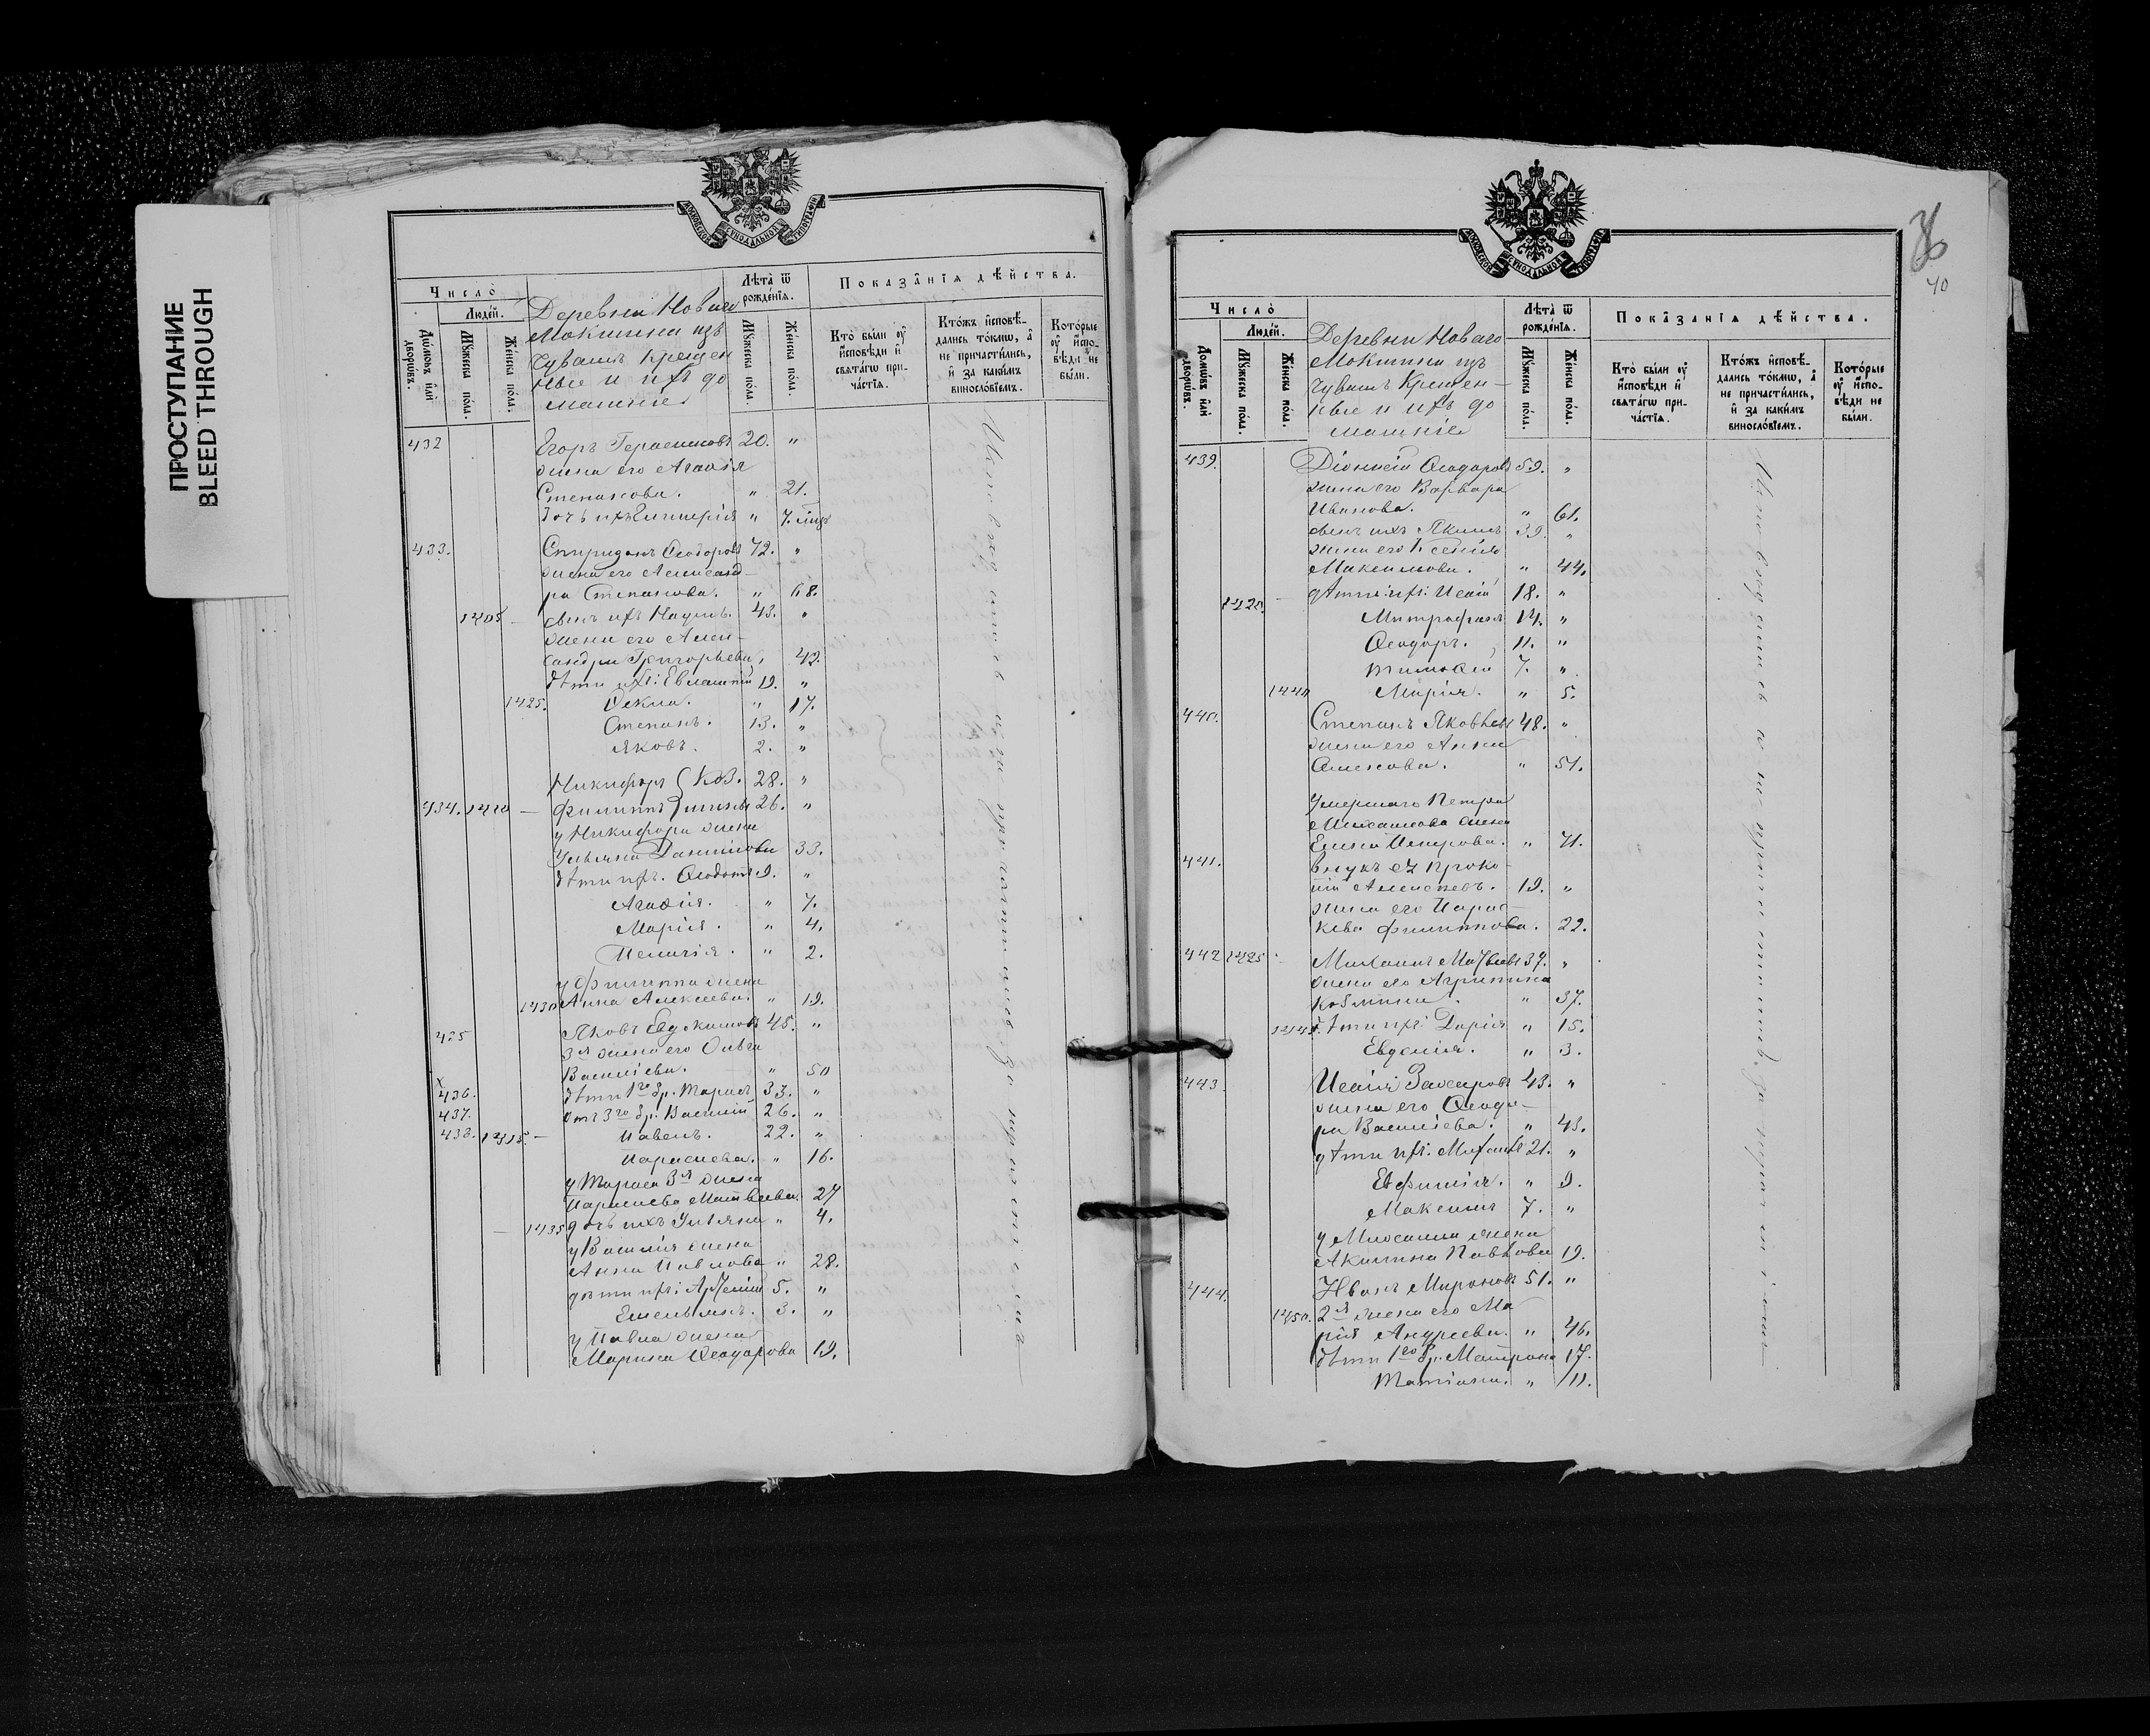 ПРОСТУПАНИЕ
BLEED THROUGH
МОСКОВСКОЙ СѴНОДАЛЬНОЙ ТИПОГРАФІИ
Число̀
Людей.
Домѡвъ или дворѡвъ.
Мꙋжеска пола.
Женска пола.
Деревни Новаго
Мокшина изъ
Чувашъ крещен
ные и ихъ до
машніе
Лѣта ѿ рожденїѧ.
Мꙋжеска пола.
Женска пола.
Показанїѧ дѣйства.
Кто были оу исповѣди и свѧтагѡ причастїѧ.
Ктожъ исповѣдались токмѡ, а не причастились, и за какимъ винословїемъ.
Которые оу исповѣди не были.
432 Егоръ Герасимовъ 20. "
жена его Агаѳія
Степанова. " 21.
дочь ихъ Гликерія " 7. мцъ
433. Спиридонъ Ѳеодоровъ 72. "
жена его Александ-
ра Степанова. " 68.
1405 - сынъ ихъ Наумъ. 43. "
жена его Алек-
сандра Григорьева, 42.
дѣти ихъ: Евлампій 19. "
1425. Ѳекла. " 17.
Степанъ. 13. "
Яковъ. 2. "
Никифоръ Коз. 28. "
434. 1410 - Филиппъ мины 26. "
у Никифора жена
Ульяна Данилова 33.
дѣти ихъ. Ѳеодотъ 9. "
Агаѳія. " 7.
Марія. " 4.
Пелагія. " 2.
у Филиппа жена
1430 Анна Алексеева. " 19.
435 Яковъ Евдокимовъ 45. "
3я жена его Ольга
Василіева. " 50
436. дѣти 1го бр. Тарасъ 33. "
437. отъ 3го бр. Василій 26. "
438. 1415 - Павелъ. 22. "
Параскева. " 16.
у Тараса 3я жена
Параскева Матвеева. 27
- 1435 дочь ихъ Ульяна " 4.
у Василія жена
Анна Павлова " 28.
дѣти ихъ: Арсеній 5. "
Емельянъ. 3. "
у Павла жена
Марина Ѳеодорова 19.
36
40
МОСКОВСКОЙ СѴНОДАЛЬНОЙ ТИПОГРАФІИ
Число̀
Людей.
Домѡвъ или дворѡвъ.
Мꙋжеска пола.
Женска пола.
Деревни Новаго
Мокшина изъ
Чувашъ крещен-
ные и ихъ до
машніе
Лѣта ѿ рожденїѧ.
Мꙋжеска пола.
Женска пола.
Показанїѧ дѣйства.
Кто были оу исповѣди и свѧтагѡ причастїѧ.
Ктожъ исповѣдались токмѡ, а не причастились, и за какимъ винословїемъ.
Которые оу исповѣди не были.
439. Діонисій Ѳеодоровъ 59. "
жена его Варвара
Иванова. " 61.
сынъ ихъ Якимъ 39. "
жена его Ксенія
Максимова. " 44.
1420. - дѣти ихъ: Исаій 18. "
Митрофанъ 14. "
Ѳеодоръ. 11. "
Тимоѳей 7. "
1440 Марія. " 5.
440. Степанъ Яковлевъ 48. "
жена его Анна
Семенова. " 51.
Умершаго Петра
Михаилова жена
Елена Петрова. " 71.
441. внукъ ея Проко-
пій Алексеевъ. 19. "
жена его Парас-
кева Филиппова. 22.
442 1425 - Михаилъ Матвеевъ 37. "
жена его Агрипина
Козмина. " 37.
1445 дѣти ихъ: Дарія " 15.
Евдокія. " 3.
443. Исаія Захаровъ 43. "
жена его Ѳеодо-
ра Василіева. " 43.
дѣти ихъ: Михаилъ 21. "
Евфимія. " 9.
Максимъ 7. "
у Михаила жена
Акилина Павлова 19.
444. Иванъ Мироновъ 51. "
1450. 2я жена его Ма
рія Андреева. " 46.
дѣти 1го бр. Матрона 17.
Татіана. " 11.